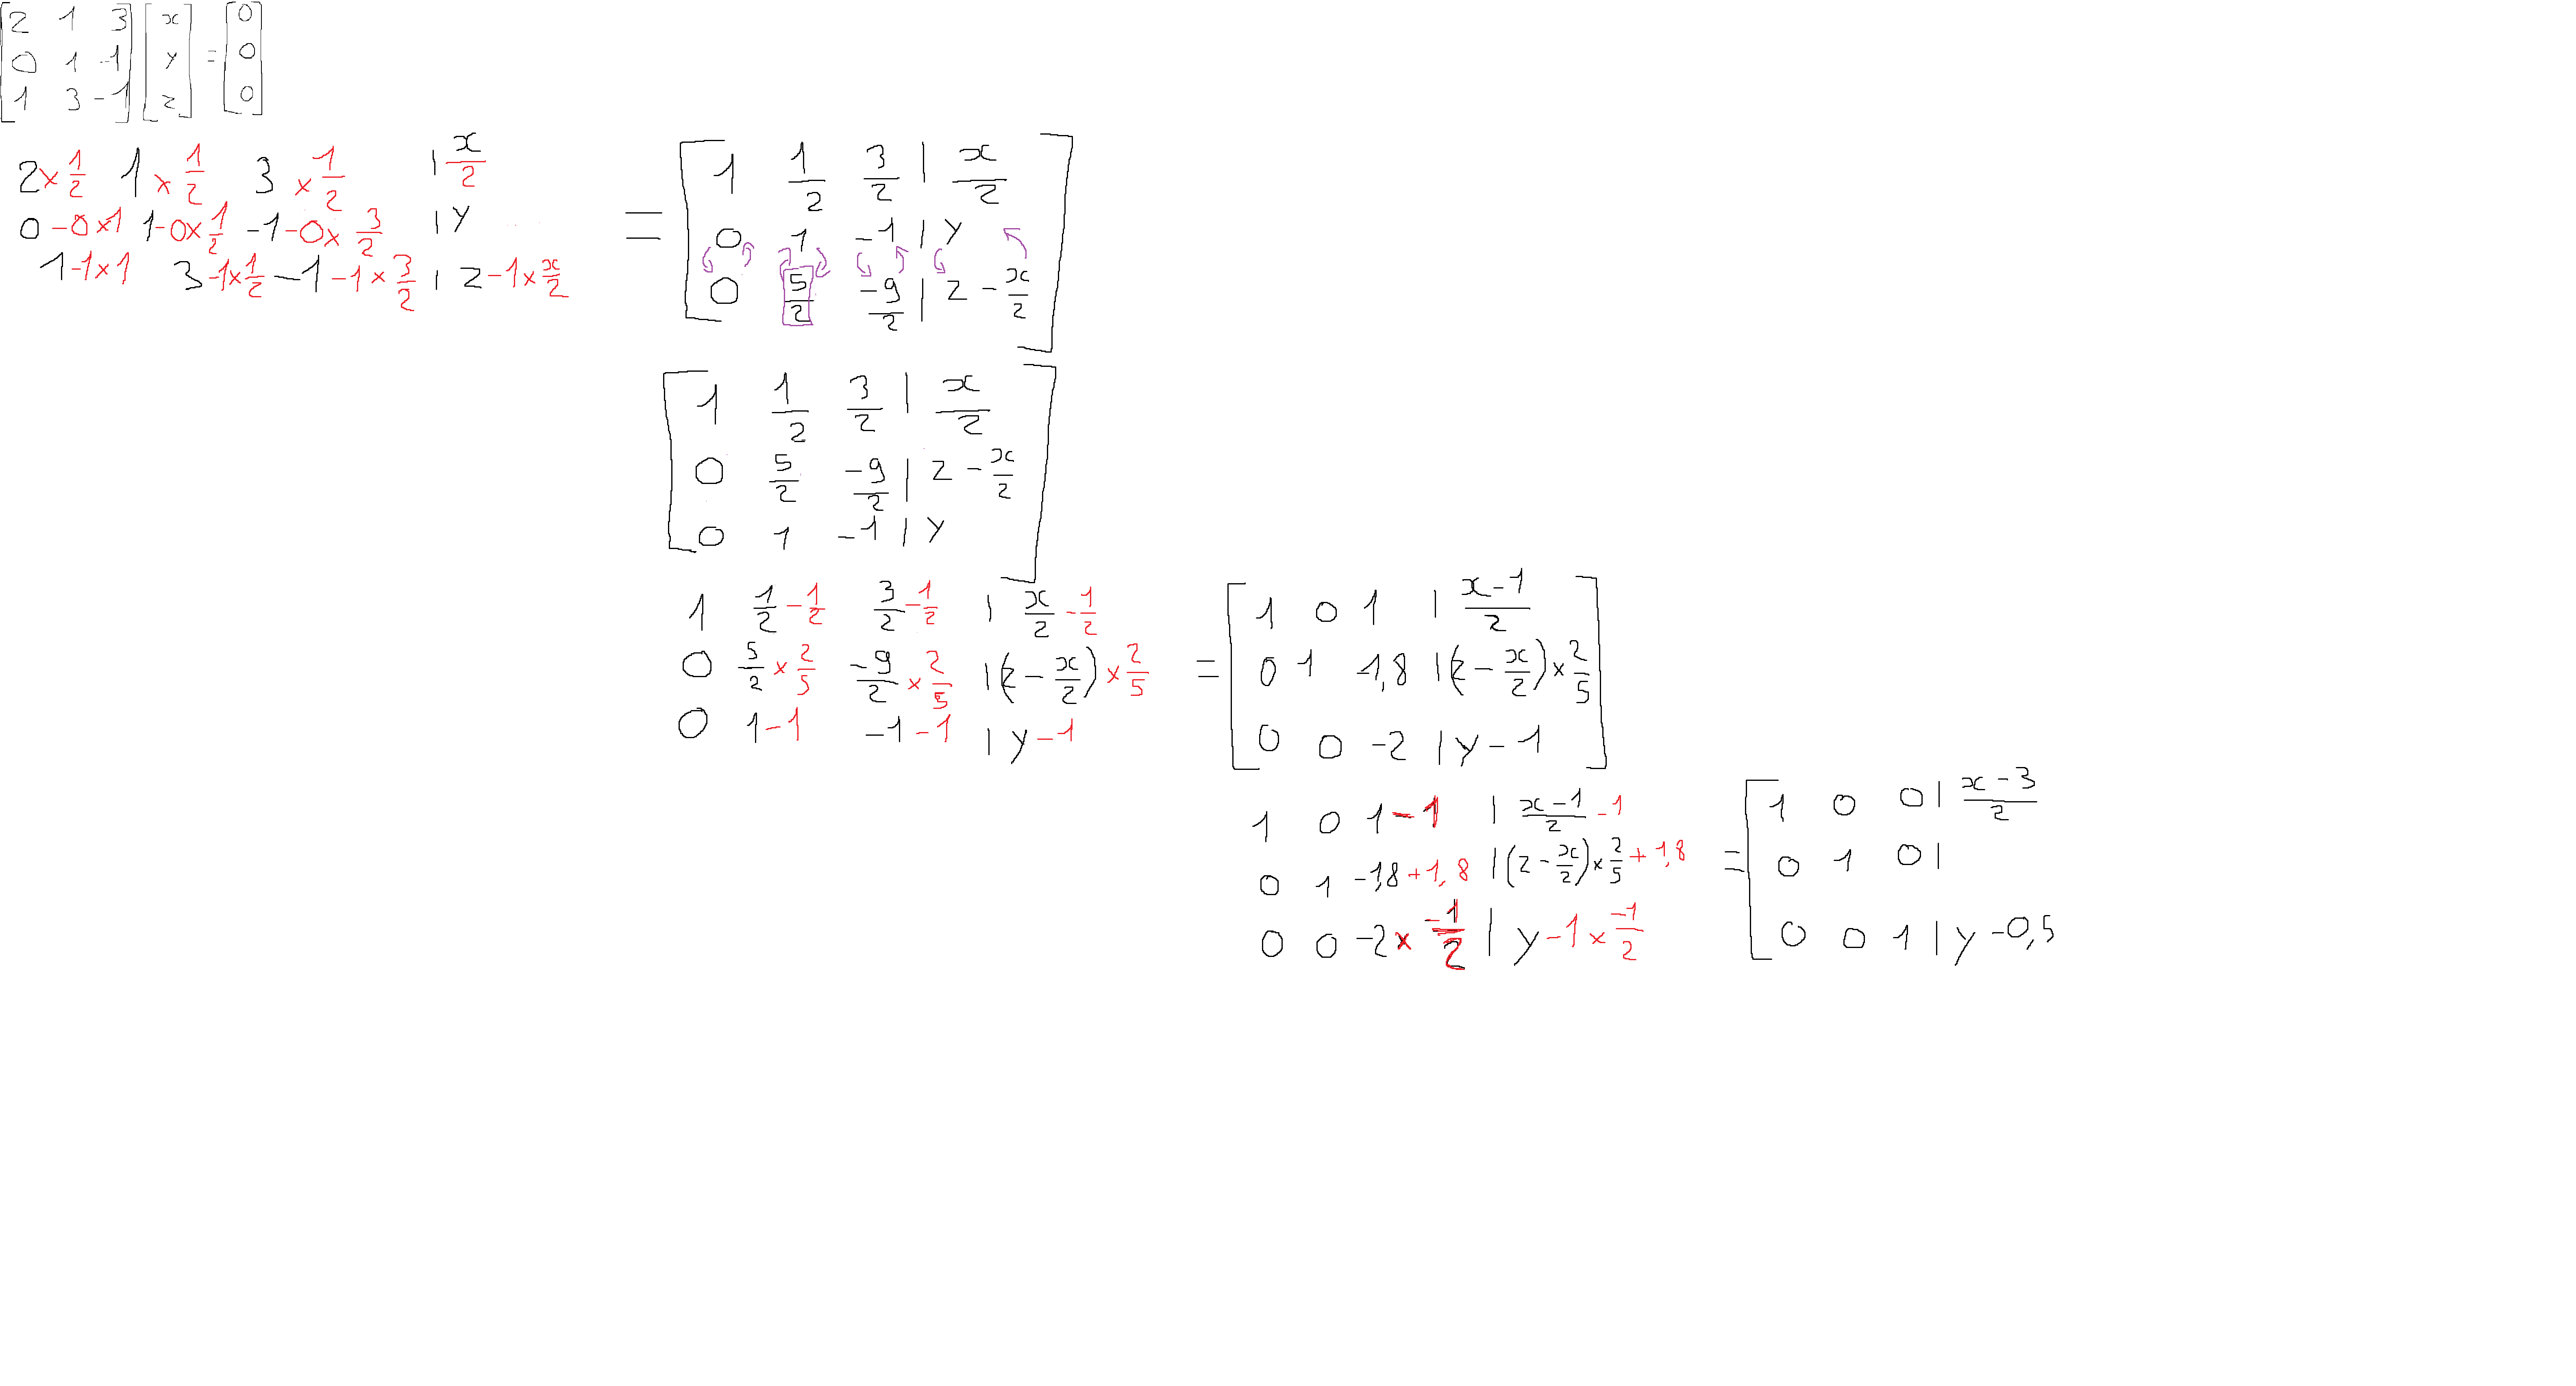 [2 1 3] [x] [0]
[0 1 -1] [y] = [0]
[1 3 -1] [z] [0]
2×1/2 1×1/2 3×1/2 | x/2
0-0×1 1-0×1/2 -1-0×3/2 | y
1-1×1 3-1×1/2 -1-1×3/2 | z-1×x/2
= [1 1/2 3/2 | x/2]
[0 1 -1 | y]
[0 5/2 -9/2 | z - x/2]
[1 1/2 3/2 | x/2]
[0 5/2 -9/2 | z - x/2]
[0 1 -1 | y]
1 1/2-1/2 3/2-1/2 | x/2-1/2
0 5/2×2/5 -9/2×2/5 | (z - x/2)×2/5
0 1-1 -1-1 | y-1
= [1 0 1 | x-1/2]
[0 1 -1,8 | (z - x/2)×2/5]
[0 0 -2 | y-1]
1 0 1-1 | x-1/2 -1
0 1 -1,8+1,8 | (z - x/2)×2/5+1,8
0 0 -2×-1/2 | y-1×-1/2
= [1 0 0 | x-3/2
0 1 0 |
0 0 1 | y-0,5